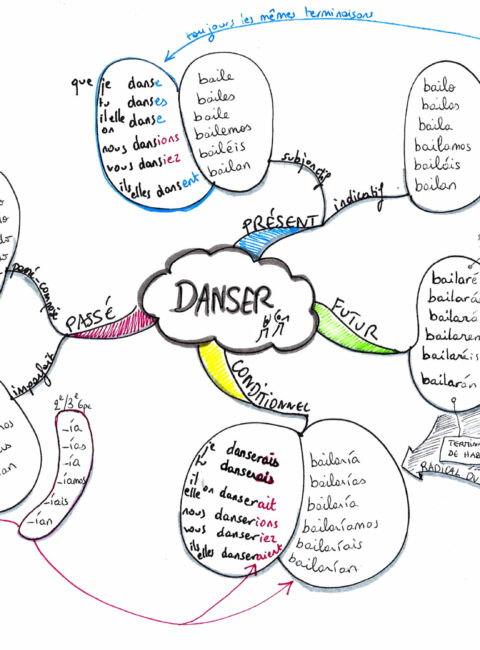 toujours les mêmes terminaisons
que je danse
tu danses
il elle danse
on
nous dansions
vous dansiez
ils elles dansent
baile
bailes
baile
bailemos
bailéis
bailan
subjonctif
bailo
bailas
baila
bailamos
bailáis
bailan
indicatif
PRÉSENT
DANSER
PASSÉ
passé composé
imparfait
2e/3e gpe
-ía
-ías
-ía
-íamos
-íais
-ían
FUTUR
bailaré
bailarás
bailará
bailarem
bailaréis
bailarán
TERMIN
DE HAB
RADICAL DU
CONDITIONNEL
je danserais
tu danserais
il
elle on danserait
nous danserions
vous danseriez
ils elles danseraient
bailaría
bailarías
bailaría
bailaríamos
bailaríais
bailarían